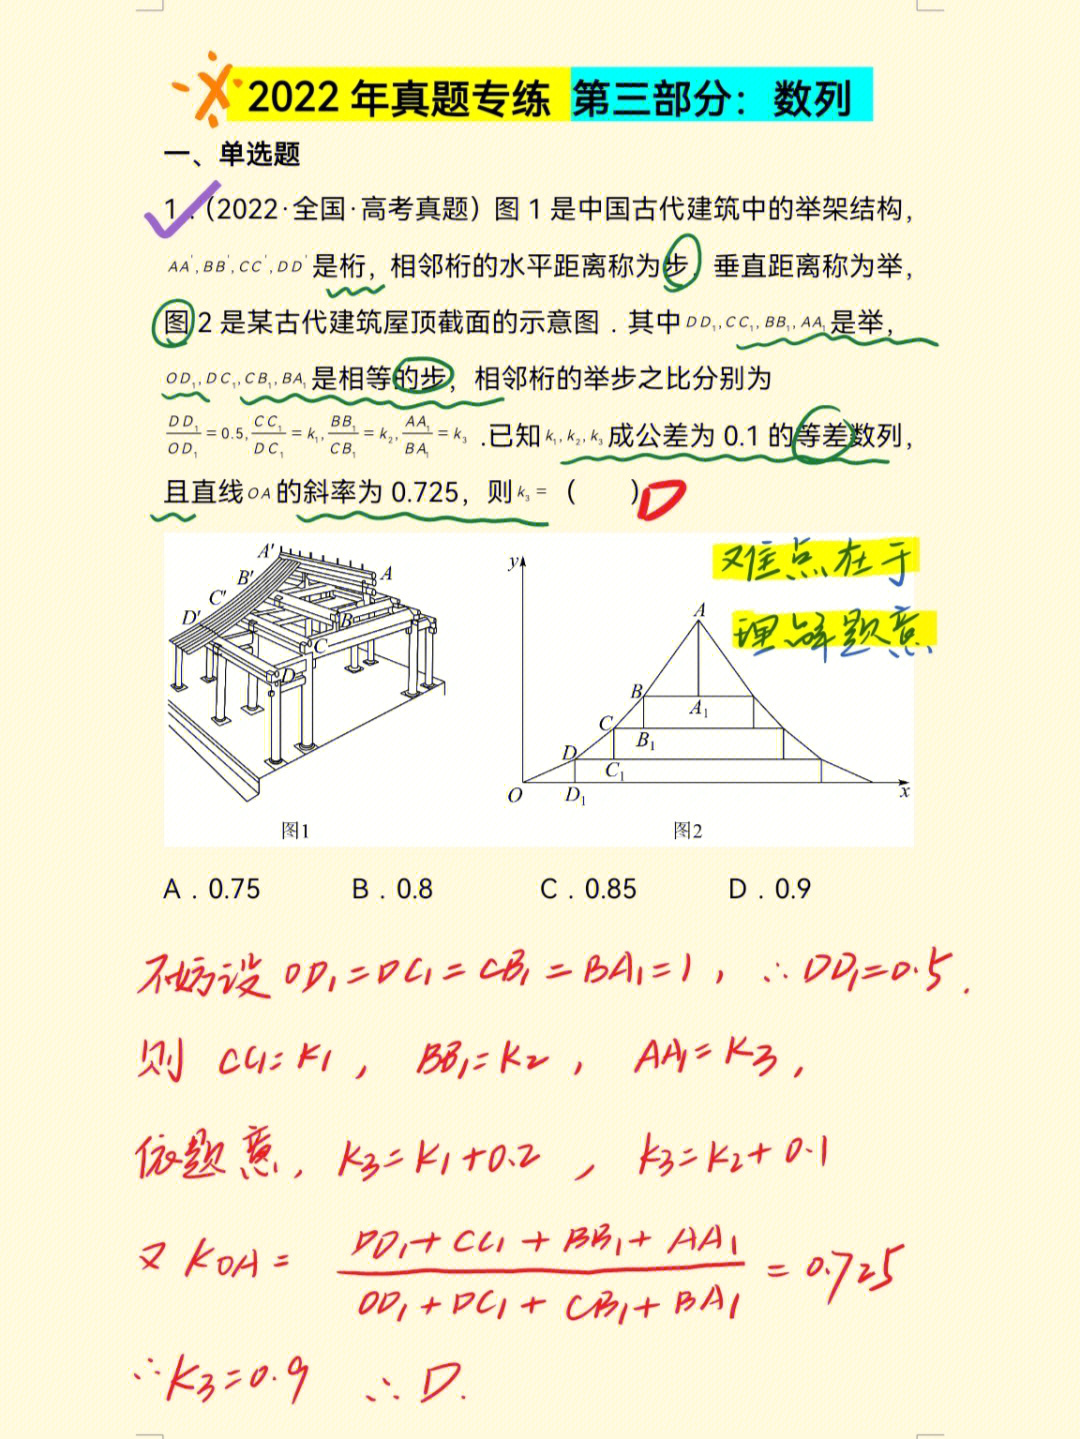 2022 年真题专练 第三部分：数列
一、单选题
1．（2022·全国·高考真题）图 1 是中国古代建筑中的举架结构，
AA′,BB′,CC′,DD′是桁，相邻桁的水平距离称为步，垂直距离称为举，
图 2 是某古代建筑屋顶截面的示意图．其中DD₁,CC₁,BB₁,AA₁是举，
OD₁,DC₁,CB₁,BA₁是相等的步，相邻桁的举步之比分别为
DD₁/OD₁=0.5,CC₁/DC₁=k₁,BB₁/CB₁=k₂,AA₁/BA₁=k₃．已知k₁,k₂,k₃成公差为 0.1 的等差数列，
且直线OA的斜率为 0.725，则k₃=（ ）D
难点在于
理解题意
A′
A
B′
B
C′
C
D′
D
图1
y
A
B
A₁
C
B₁
D
C₁
O
D₁
x
图2
A．0.75 B．0.8 C．0.85 D．0.9
不妨设 OD₁=DC₁=CB₁=BA₁=1，∴DD₁=0.5.
则 CC₁=K₁，BB₁=K₂，AA₁=K₃，
依题意，K₃=K₁+0.2，K₃=K₂+0.1
又 KOA= DD₁+CC₁+BB₁+AA₁/OD₁+DC₁+CB₁+BA₁ =0.725
∴K₃=0.9 ∴D.